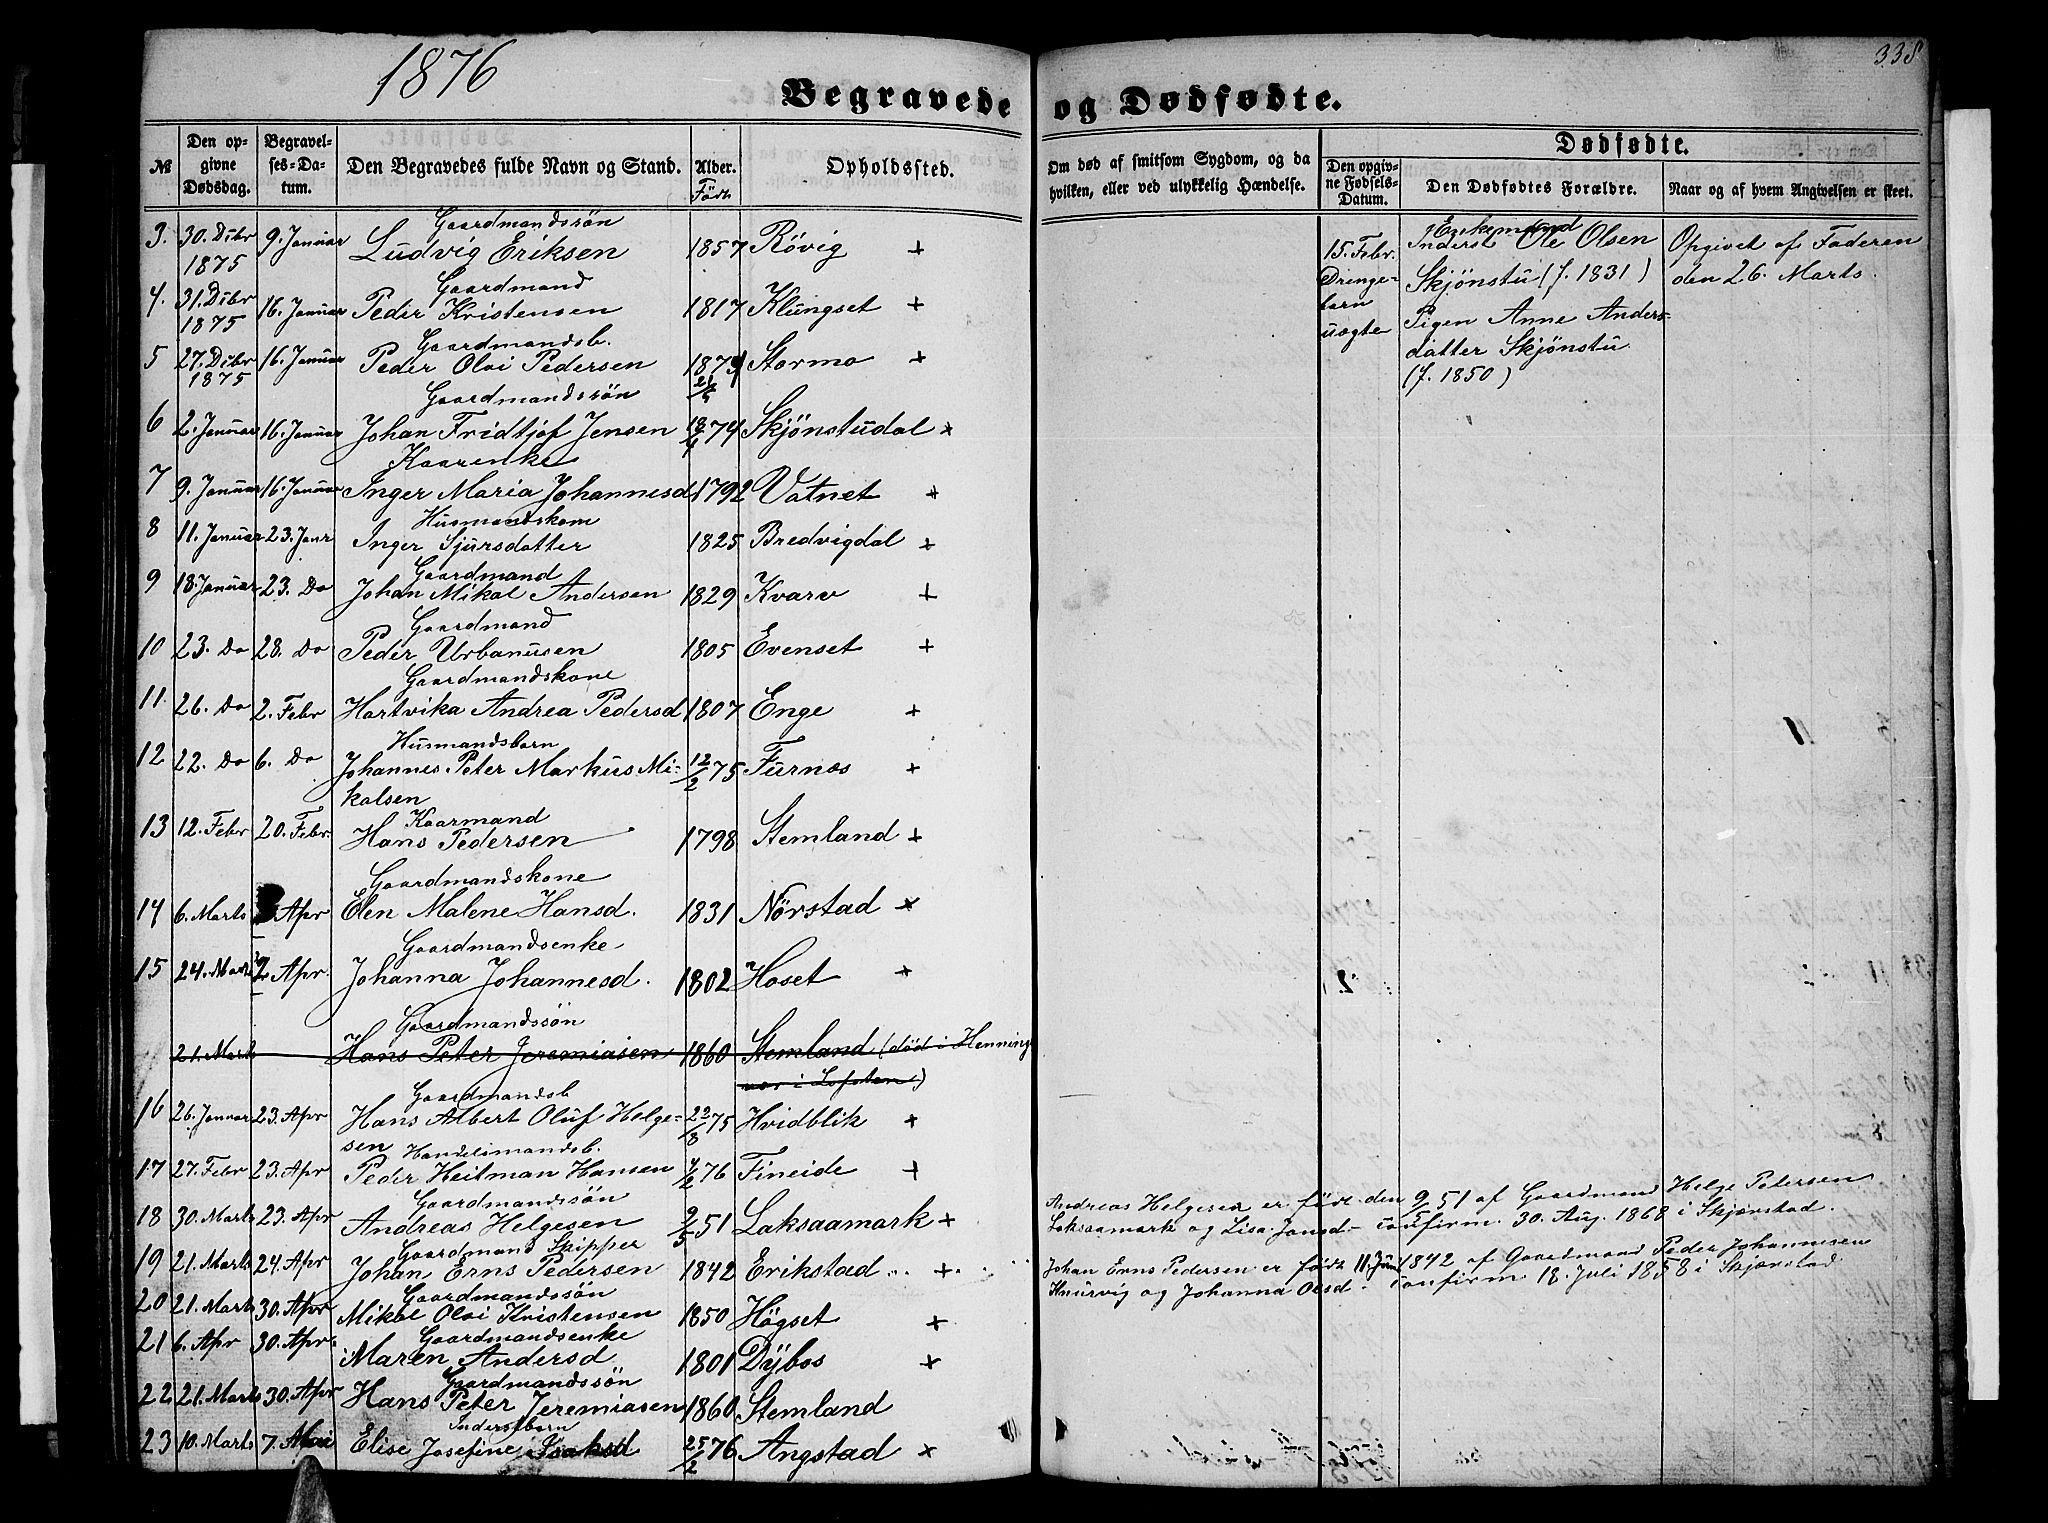 1876
338
Begravede og Dødfødte.
№
Den op-
givne
Dødsdag.
Begravel-
ses-Da-
tum.
Den Begravedes fulde Navn og Stand.
Alder.
Født
Opholdssted.
Om død af smitsom Sygdom, og da
hvilken, eller ved ulykkelig Hændelse.
Dødfødte.
Den opgiv-
ne Fødsels-
Datum.
Den Dødfødtes Forældre.
Naar og af hvem Angivelsen er skeet.
Gaardmandssön
3. 30. Dcbr 1875 9. Januar Ludvig Eriksen 1857 Rövig +
Gaardmand
4. 31. Dcbr 1875 16. Januar Peder Kristensen 1817 Klungset +
Gaardmandsb.
5 27. Dcbr 1875 16. Januar Peder Olai Pedersen Stormo +
Gaardmandssön
6 2. Januar 16. Januar Johan Fridtjof Jensen Skjönstudal ×
Kaarenke
7 9. Januar 16. Januar Inger Maria Johannesd. 1792 Vatnet +
Husmandskom
8 11. Januar 23. Janr Inger Sjursdatter 1825 Bredvigdal +
Gaardmand
9 18. Januar 23. Do Johan Mikal Andersen 1829 Kvarv +
Gaardmand
10 23. Do 28. Do Peder Urbanusen 1805 Evenset +
Gaardmandskone
11. 26. Do 2. Febr Hartvika Andrea Pedersd 1807 Enge +
Husmandsbarn
12 22. Do 6. Do Johannes Peter Markus Mi- 12/2 75 Furnæs +
kalsen
Kaarmand
13 12. Febr 20. Febr. Hans Pedersen 1798 Stemland +
Gaardmandskone
14 6. Marts Apr Elen Malene Hansd. 1831 Nörstad ×
Gaardmandsenke
15 24. Marts 2 Apr. Johanna Johannesd. 1802 Hoset ×
Gaardmandssön
21. Mart Hans Peter Jeremiasen 1860 Stemland (död i Henning
vær i Lofoten)
Gaardmandsb
16 26. Januar 23. Apr Hans Albert Oluf Helge- 22/8 75 Hvidblik +
sen
Handelsmandsb.
17 27. Febr 23. Apr Peder Heitman Hansen 76 Fineide +
Gaardmandssön
18 30. Marts 23. Apr Andreas Helgesen 9/5 51 Laksaamark +
Gaardmand Skipper
19 21. Marts 24. Apr Johan Erns Pedersen 1842 Erikstad +
Gaardmandssön
20 21. Marts 30. Apr Mikal Olai Kristensen 1850 Högset ×
Gaardmandsenke
21 6. Apr 30. Apr. Maren Andersd 1801 Dybos ×
Gaardmandssön
22 21. Marts 30. Apr Hans Peter Jeremiasen 1860 Stemland
Inderstbarn
23 10. Marts 7. Mai Elise Josefine Isaksd 25/2 76 Angstad ×
15. Febr.
Drenge-
barn
uægte
Enkemand
Inderst Ole Olsen
Skjönstu (f. 1831)
Pigen Anne Anders-
datter Skjönstu
(f. 1850)
Opgivet af Faderen
den 26. Marts.
Andreas Helgesen er födt den 9/5 51 af Gaardmand Helge Petersen
Laksaamark og Lisa Jansd - confirm. 30. Aug. 1868 i Skjerstad.
Johan Erns Pedersen er födt 11. Juni 1842 af Gaardmand Peder Johannesen
Knurvig og Johanna Olsd. confirm 18. Juli 1858 i Skjerstad